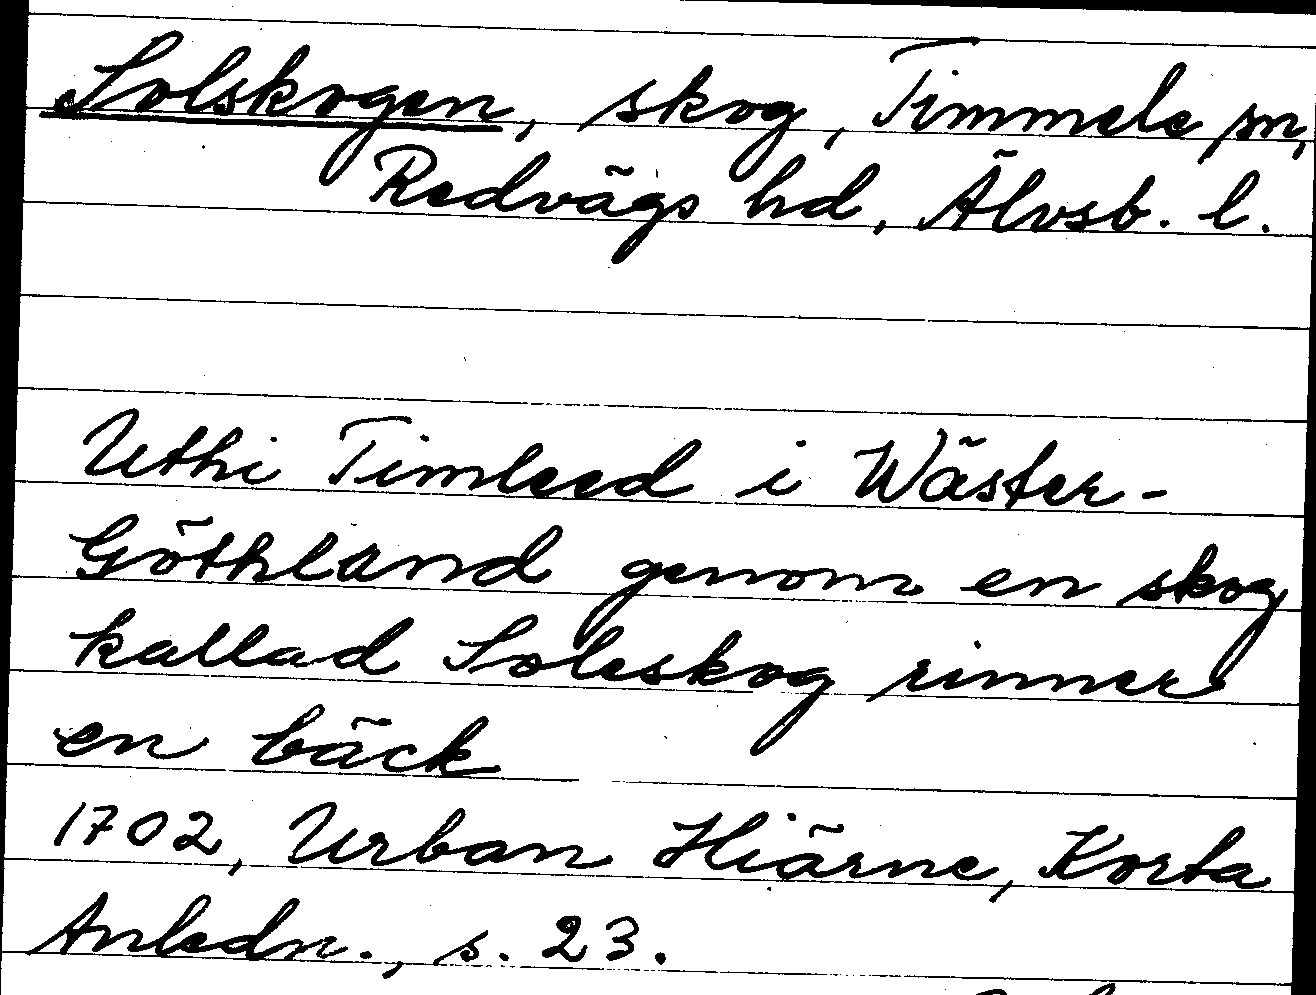 Solskogen, skog, Timmele sn,
Redvägs hd, Älvsb. l.
Uthi Timleed i Wäster-
Göthland genom en skog
kallad Soleskog rinner
en bäck
1702, Urban Hiärne, Korta
Anledn., s. 23.